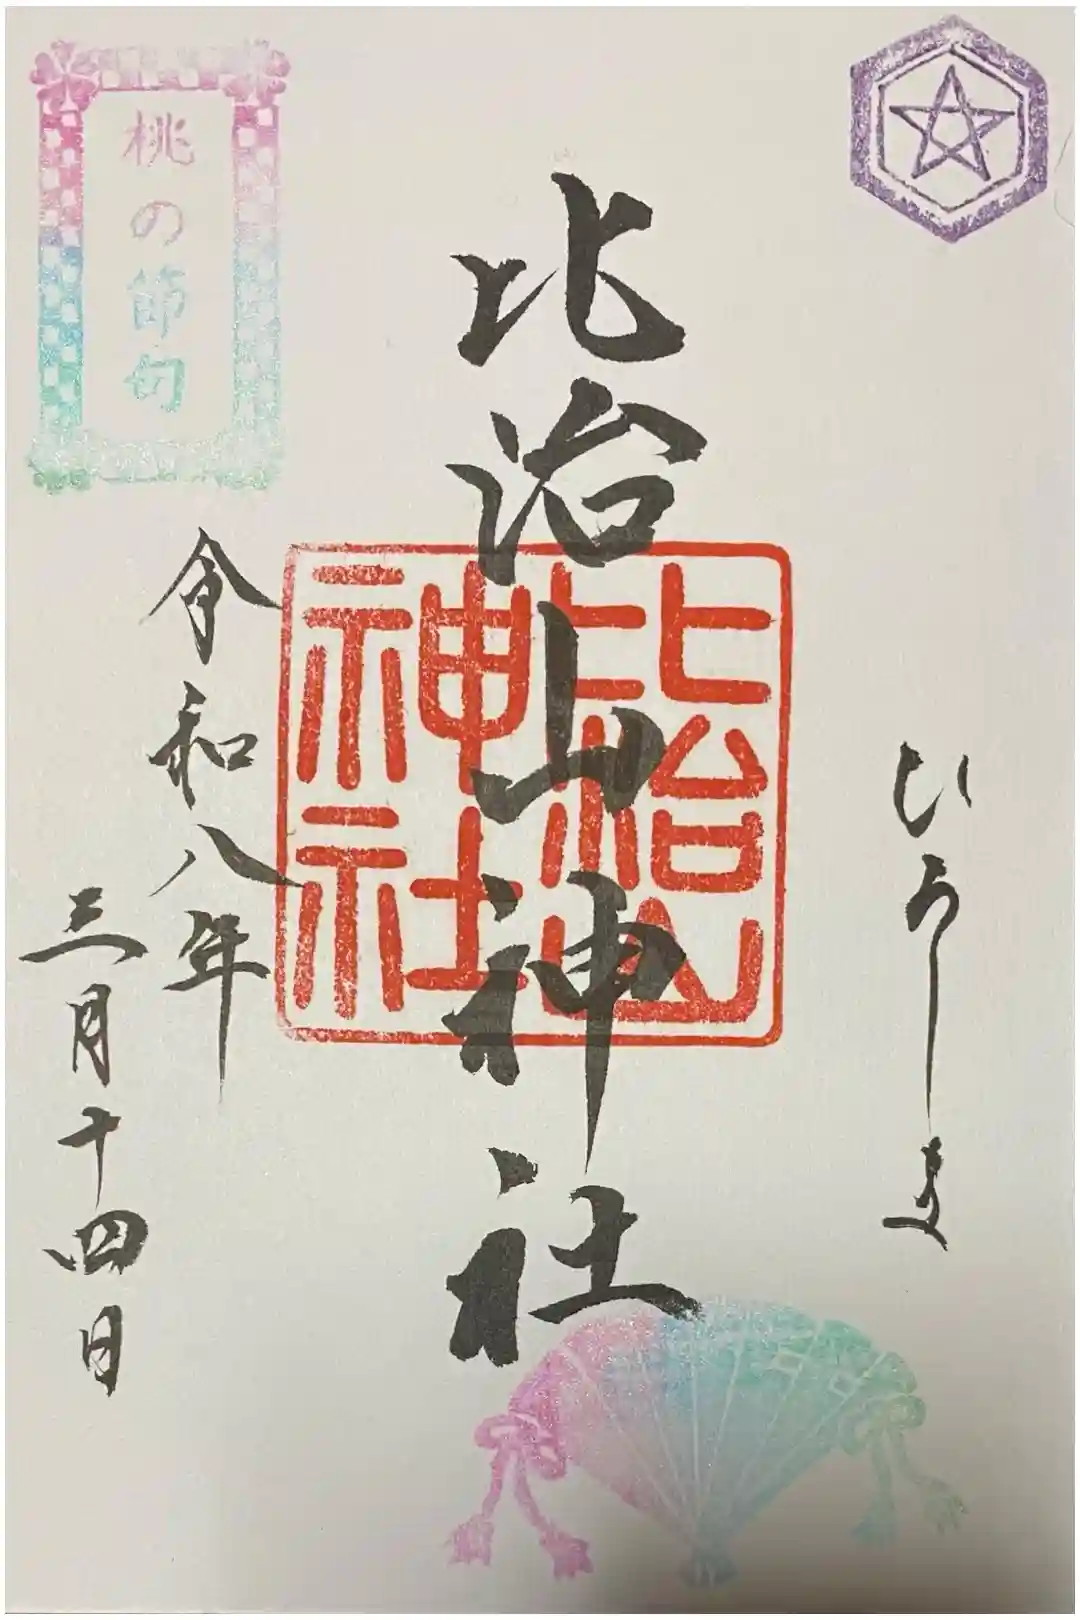 ひろしま
比治山神社
比治山神社
桃の節句
令和八年
三月十四日